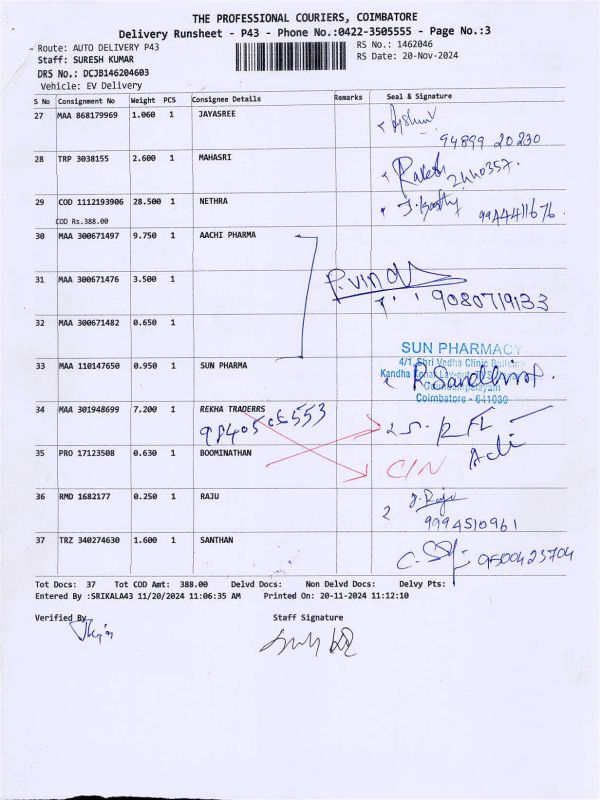 THE PROFESSIONAL COURIERS, COIMBATORE
Delivery Runsheet - P43 - Phone No.:0422-3505555 - Page No.:3
Route: AUTO DELIVERY P43
RS No.: 1462046
Staff: SURESH KUMAR
RS Date: 20-Nov-2024
DRS No.: DCJB146204603
Vehicle: EV Delivery
S No Consignment No Weight PCS Consignee Details Remarks Seal & Signature
27 MAA 868179969 1.060 1 JAYASREE
94899 20230
28 TRP 3038155 2.600 1 MAHASRI
Rakesh 2440357.
29 COD 1112193906 28.500 1 NETHRA
9944411676.
COD Rs.388.00
30 MAA 300671497 9.750 1 AACHI PHARMA
31 MAA 300671476 3.500 1
P.vind
9080719133
32 MAA 300671482 0.650 1
SUN PHARMACY
33 MAA 110147650 0.950 1 SUN PHARMA
4/1 Shri Vedha Clinic
Coimbatore - 641030
34 MAA 301948699 7.200 1 REKHA TRADERRS
35 PRO 17123508 0.630 1 BOOMINATHAN
C/N
36 RMD 1682177 0.250 1 RAJU
J. Raju
9994510961
37 TRZ 340274630 1.600 1 SANTHAN
9500423704
Tot Docs: 37 Tot COD Amt: 388.00 Delvd Docs: Non Delvd Docs: Delvy Pts:
Entered By :SRIKALA43 11/20/2024 11:06:35 AM Printed On: 20-11-2024 11:12:10
Verified By Staff Signature